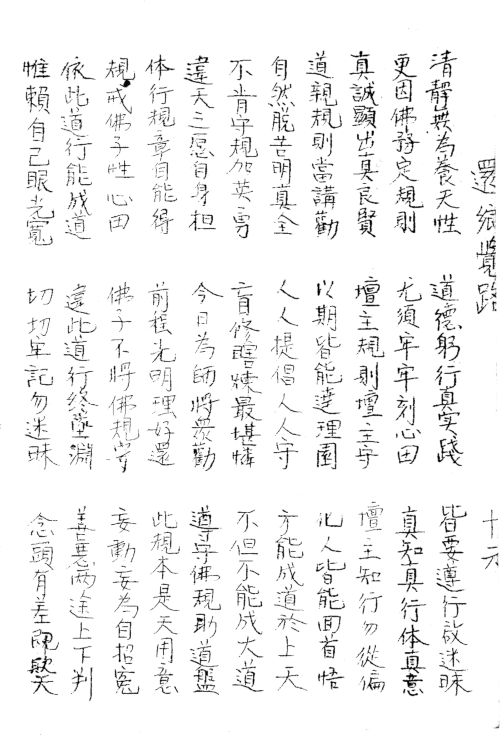 還鄉覺路 十
清靜無為養天性 道德躬行真实踐 皆要遵行啟迷昧
更因佛發定規則 尤須牢牢刻心田 真知真行体真意
真誠顯出真良賢 壇主規則壇主守 壇主知行勿從偏
道親規則當講勸 以期皆能達理園 化人皆能回首悟
自然脫苦明真全 人人提倡人人守 方能成道於上天
不肯守規加英勇 盲修瞎煉最堪憐 不但不能成大道
違天之愿自身担 今日為師將眾勸 遵守佛規助道盤
体行規章自能得 前程光明理好還 此規本是天用意
規戒佛子性心田 佛子不将佛規守 妄動妄為自招冤
依此道行能成道 違此道行終墮淵 善惡两途上下判
惟賴自己眼光寬 切切牢記勿迷昧 念頭有差欺天